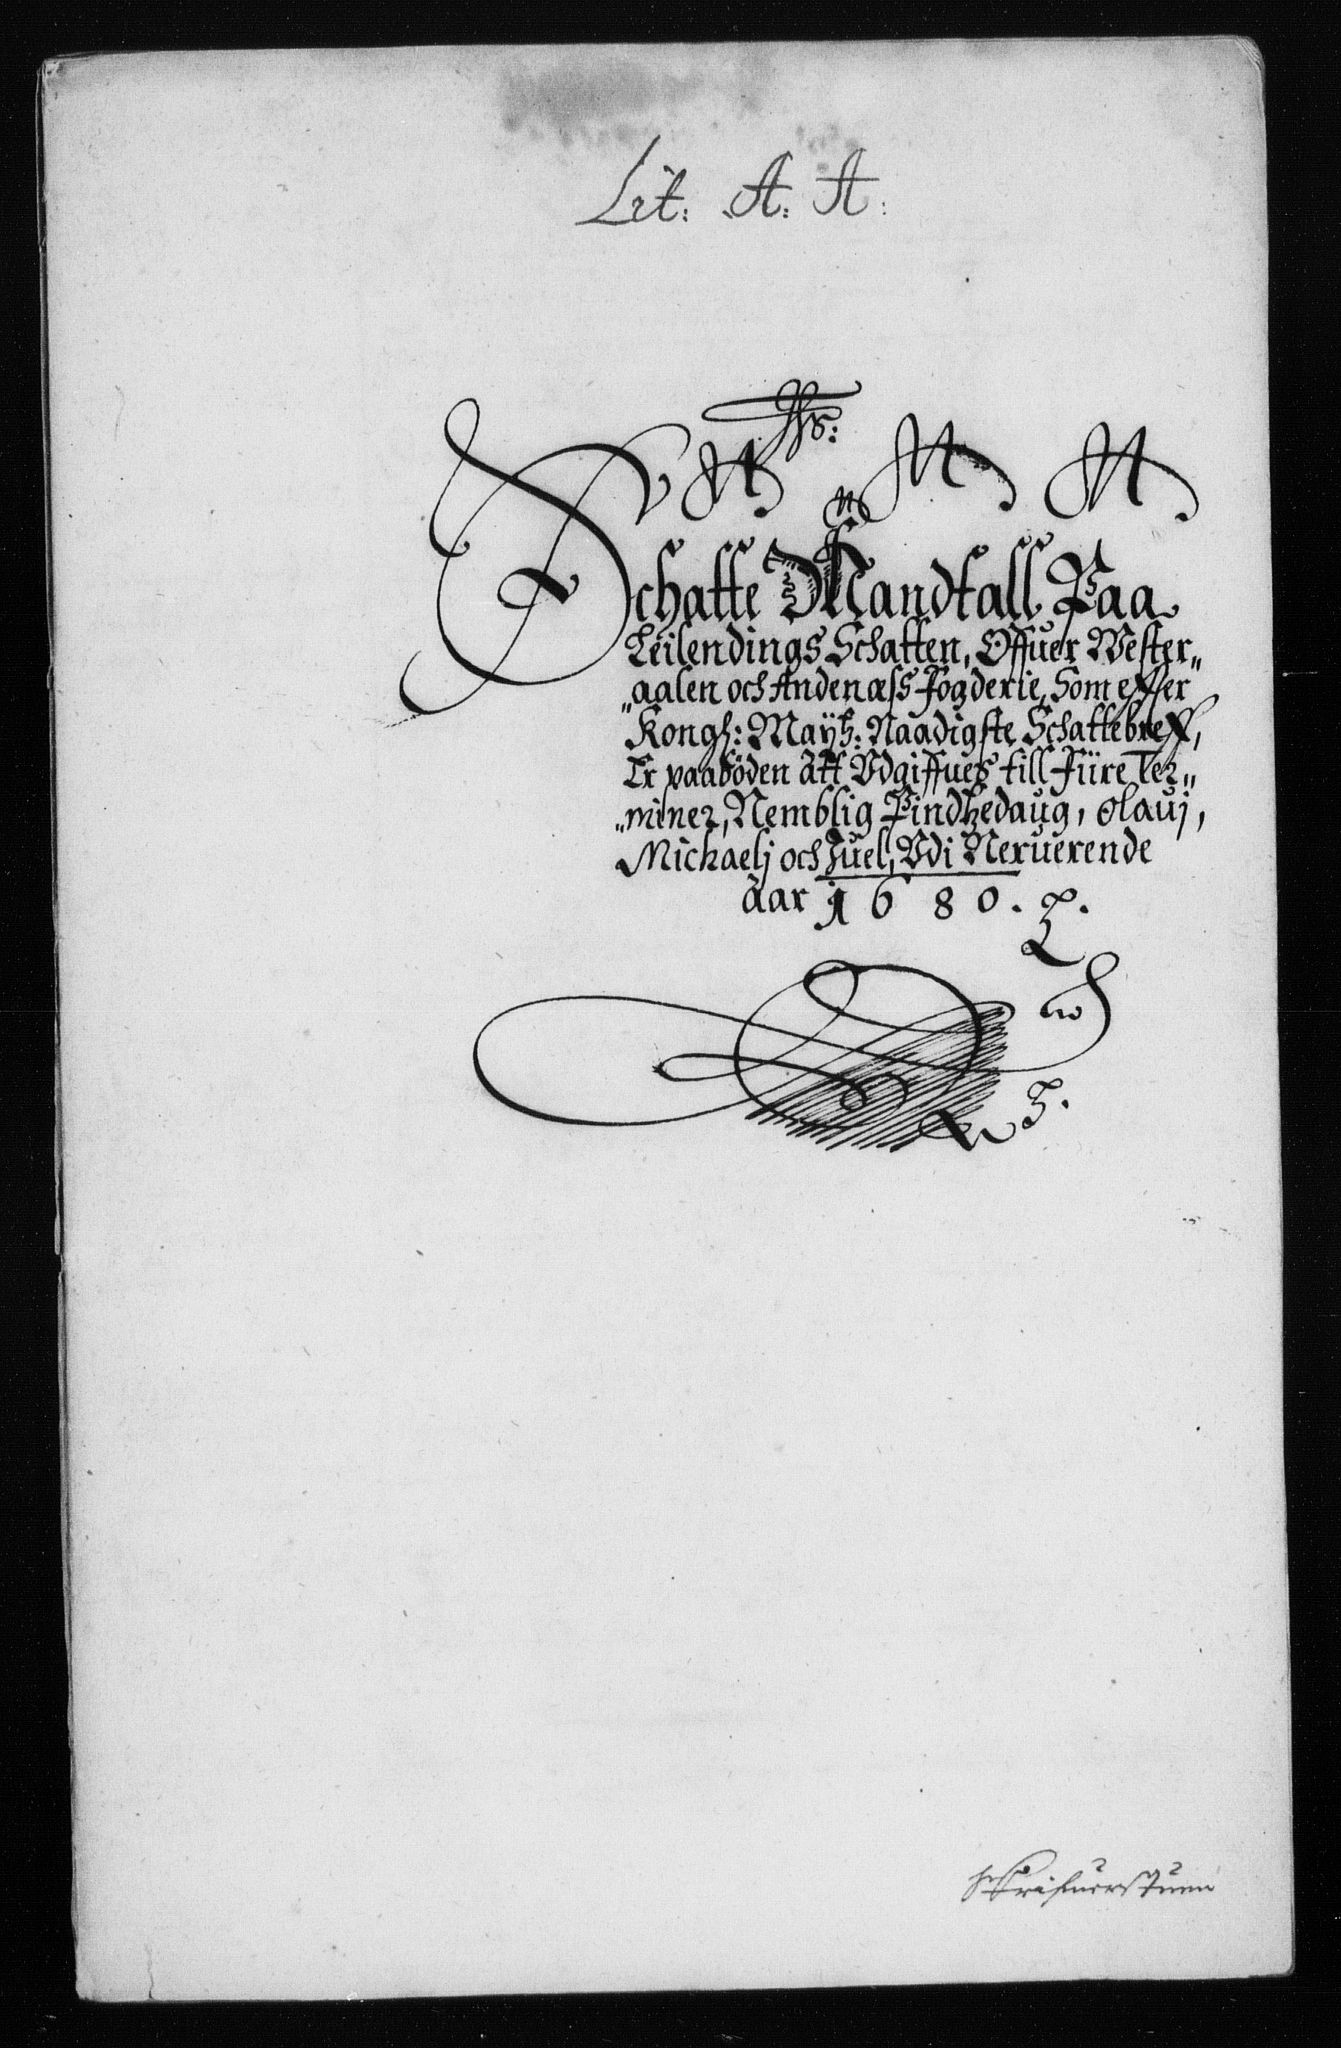 Lit: A: A:
Schatte Mandtall Paa
Leilendings Schatten, Offuer Wester„
„aalen och Andenæss Fogderie, Som effter
Kongh: Mayh: Naadigste Schattebreff,
Er paaböden att Vdgiffues till Fiire Ter„
„miner, Nemblig Pindtzedaug, Olauj,
Michaelj och Juel, Vdi Neruerende
aar 1680.